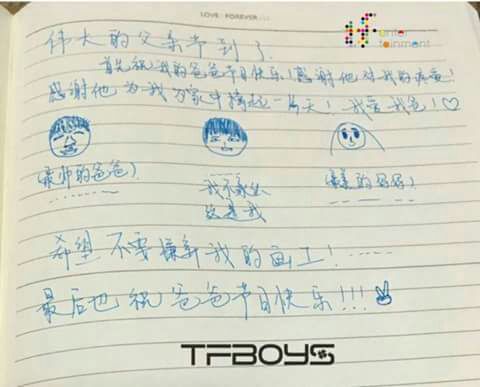 LOVE · FOREVER...
enter
tainment
伟大的父亲节到了.
首先祝我的爸爸节日快乐！感谢他对我的疼爱！
感谢他为我为家中撑起一片天！我爱我爸！♡
(最帅的爸爸)
我不
这是我
(最美的妈妈)
希望不要嫌弃我的画工！......
最后也祝爸爸节日快乐!!!✌
TFBOYS